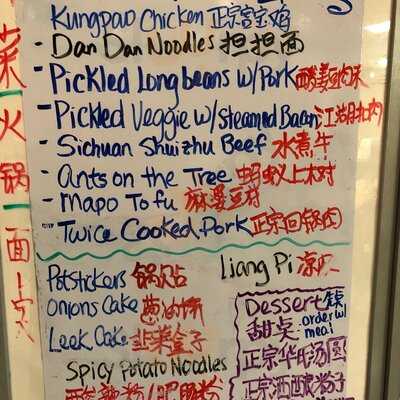 Kungpao Chicken 正宗宫宝鸡
- Dan Dan Noodles 担担面
- Pickled Longbeans w/Pork 酸姜豆肉末
- Pickled Veggie w/Steamed Bacon 江湖扣肉
- Sichuan Shuizhu Beef 水煮牛
- Ants on the Tree 蚂蚁上树
- Mapo Tofu 麻婆豆腐
- Twice Cooked Pork 正宗回锅肉
菜一火锅一面
Potstickers 锅贴
Onions Cake 葱油饼
Leek Cake 韭菜盒子
Spicy Potato Noodles
酸辣粉/肥肠粉
Liang Pi 凉皮
Dessert
order w/
甜点 meal
正宗华氏汤圆
正宗酒酿粉子